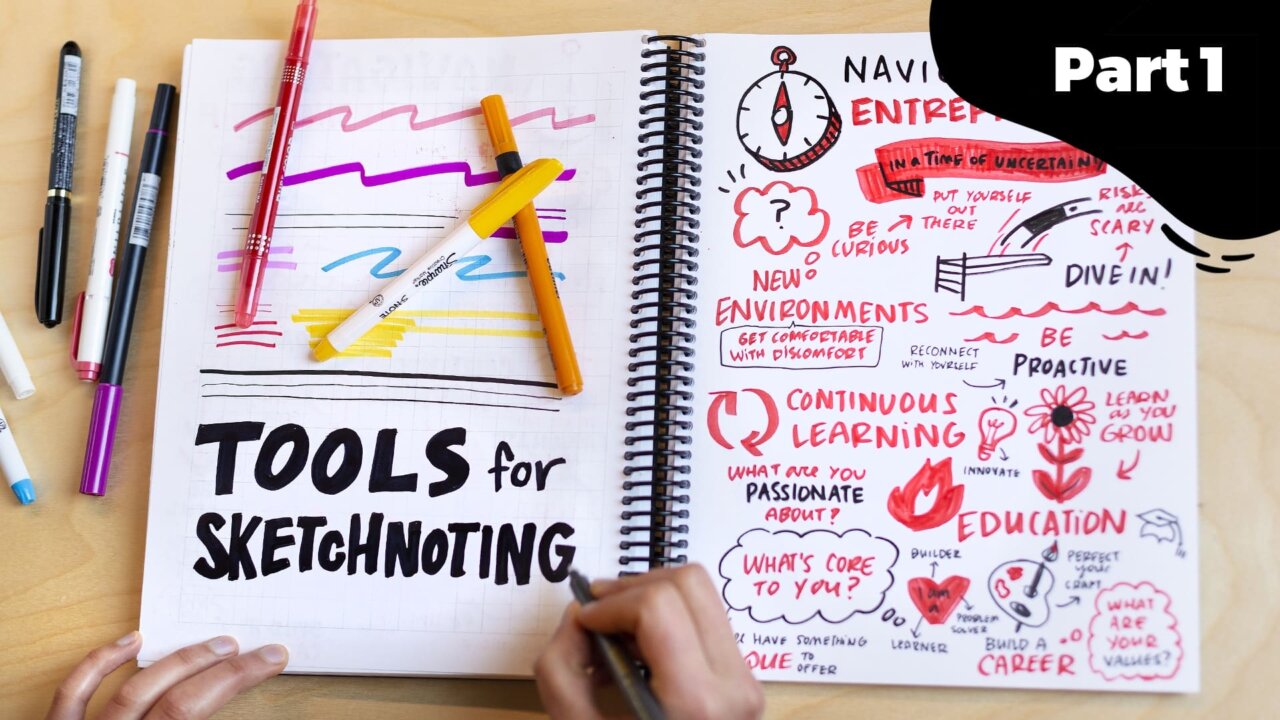 Part 1
TOOLS for
SKETCHNOTING
Sharpie
S·NOTE
ENTREP
IN A TIME OF UNCERTAIN
PUT YOURSELF
OUT
THERE
RISKS
ARE
SCARY
?
BE
CURIOUS
DIVE IN!
NEW
ENVIRONMENTS
GET COMFORTABLE
WITH DISCOMFORT
BE
PROACTIVE
RECONNECT
WITH YOURSELF
CONTINUOUS
LEARNING
INNOVATE
LEARN
as YOU
GROW
WHAT are YOU
PASSIONATE
ABOUT?
EDUCATION
WHAT'S CORE
TO YOU?
BUILDER
I am
a
PROBLEM
SOLVER
LEARNER
PERFECT
your
CRAFT
BUILD A
CAREER
WHAT
ARE
YOUR
VALUES?
HAVE SOMETHING
QUE TO
OFFER